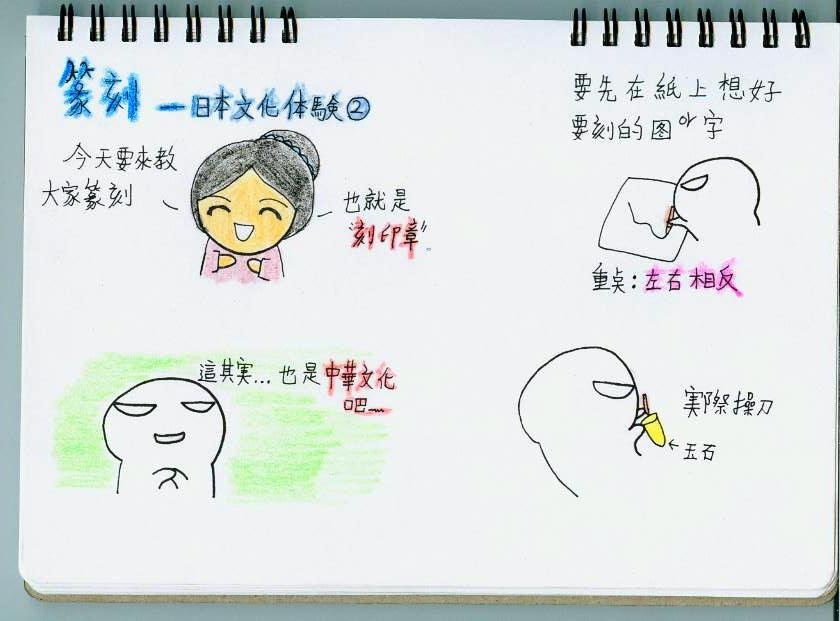 篆刻 — 日本文化体験②
今天要來教
大家篆刻
也就是
"刻印章"。
這其実...也是中華文化
吧~
要先在紙上想好
要刻的图or字
重点:左右相反
実際操刀
←玉石